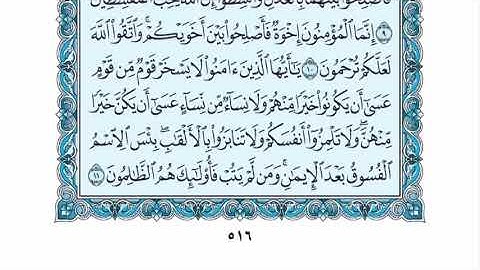 فَأَصْلِحُوا۟ بَيْنَهُمَا بِٱلْعَدْلِ وَأَقْسِطُوٓا۟ إِنَّ ٱللَّهَ يُحِبُّ ٱلْمُقْسِطِينَ
٩ إِنَّمَا ٱلْمُؤْمِنُونَ إِخْوَةٌ فَأَصْلِحُوا۟ بَيْنَ أَخَوَيْكُمْ ۚ وَٱتَّقُوا۟ ٱللَّهَ
لَعَلَّكُمْ تُرْحَمُونَ ١٠ يَٰٓأَيُّهَا ٱلَّذِينَ ءَامَنُوا۟ لَا يَسْخَرْ قَوْمٌ مِّن قَوْمٍ
عَسَىٰٓ أَن يَكُونُوا۟ خَيْرًا مِّنْهُمْ وَلَا نِسَآءٌ مِّن نِّسَآءٍ عَسَىٰٓ أَن يَكُنَّ خَيْرًا
مِّنْهُنَّ ۖ وَلَا تَلْمِزُوٓا۟ أَنفُسَكُمْ وَلَا تَنَابَزُوا۟ بِٱلْأَلْقَٰبِ ۖ بِئْسَ ٱلِٱسْمُ
ٱلْفُسُوقُ بَعْدَ ٱلْإِيمَٰنِ ۚ وَمَن لَّمْ يَتُبْ فَأُو۟لَٰٓئِكَ هُمُ ٱلظَّٰلِمُونَ ١١
٥١٦